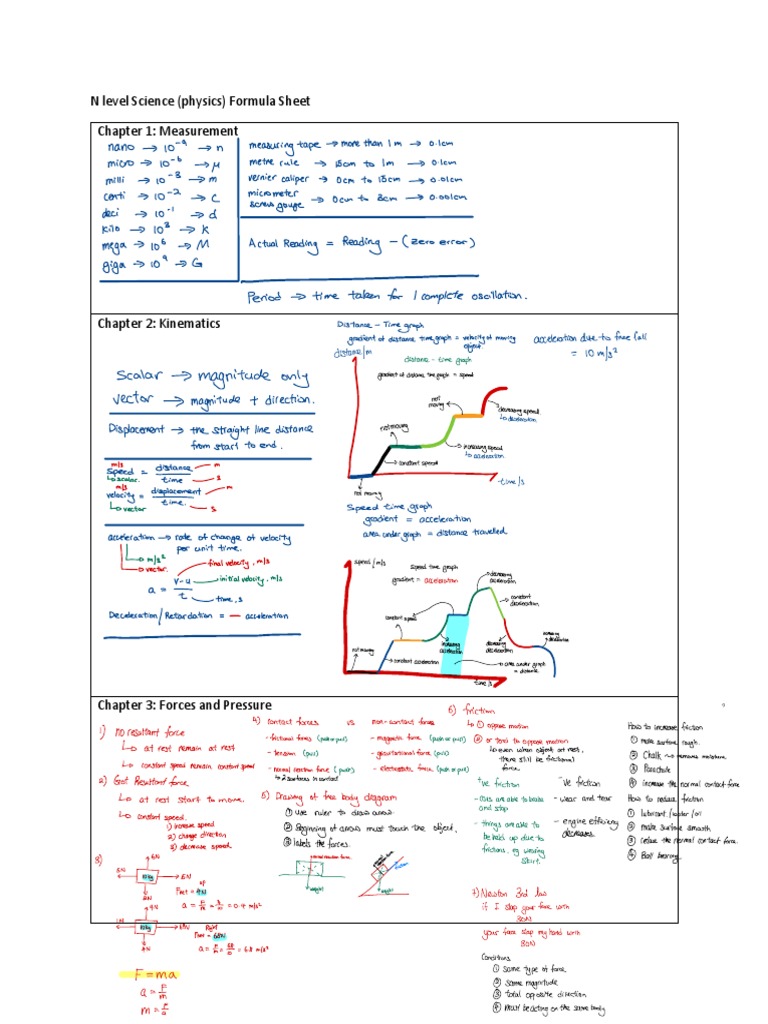 N level Science (physics) Formula Sheet
Chapter 1: Measurement
nano → 10⁻⁹ → n
micro → 10⁻⁶ → μ
milli → 10⁻³ → m
centi → 10⁻² → c
deci → 10⁻¹ → d
kilo → 10³ → k
mega → 10⁶ → M
giga → 10⁹ → G
measuring tape → more than 1m → 0.1cm
metre rule → 15cm to 1m → 0.1cm
vernier caliper → 0cm to 15cm → 0.01cm
micrometer
screw gauge → 0cm to 3cm → 0.001cm
Actual Reading = Reading - (zero error)
Period → time taken for 1 complete oscillation.
Chapter 2: Kinematics
Scalar → magnitude only
vector → magnitude + direction.
Displacement → the straight line distance
from start to end.
m/s
speed = distance / time
m
s
↳ scalar
m/s
velocity = displacement / time.
m
s
↳ vector
acceleration → rate of change of velocity
per unit time.
→ m/s²
→ vector.
a = v-u / t
final velocity, m/s
initial velocity, m/s
time, s
Deceleration/Retardation = - acceleration
Distance - Time graph
gradient of distance time graph = velocity of moving
object.
acceleration due to free fall
= 10 m/s²
distance/m
distance - time graph
gradient of distance time graph = speed
not moving
constant speed
not moving
increasing speed
↳ acceleration
not
moving
decreasing speed
↳ deceleration
time/s
Speed time graph
gradient = acceleration
area under graph = distance travelled.
speed / m/s
Speed time graph
gradient = acceleration
not moving
constant acceleration
constant speed
increasing
acceleration
decreasing
acceleration
constant
deceleration
decreasing
deceleration
increasing
deceleration
area under graph =
distance
time/s
Chapter 3: Forces and Pressure
1) no resultant force
↳ at rest remain at rest
↳ constant speed remain constant speed
2) Got Resultant force
↳ at rest start to move.
↳ constant speed.
1) increase speed
2) change direction
3) decrease speed
3)
10kg
a = F/m
= 0.4 m/s²
10kg
Right
a = F/m
= 6.8 m/s²
F = ma
a = F/m
m = F/a
4) contact forces vs non-contact forces
- frictional forces (push or pull)
- tension (pull)
- normal reaction force (push)
↳ 2 surfaces in contact
- magnetic force (push or pull)
- gravitational force (pull)
- electrostatic force (push or pull)
5) Drawing of free body diagram
① use ruler to draw arrow
② Beginning of arrows must touch the object.
③ labels the forces.
normal reaction force
weight
friction
weight
6) friction
↳ ① oppose motion
② or tend to oppose motion
↳ even when object at rest,
there still be frictional
force.
+ve friction
- cars are able to brake
and stop
- things are able to
be held up due to
frictions. eg wearing
skirt.
-ve friction
- wear and tear
- engine efficiency
decreases.
How to increase friction
① make surface rough.
② Chalk → removes moisture
③ Parachute
④ increase the normal contact force
How to reduce friction
① lubricant / water / oil
② make surface smooth
③ reduce the normal contact force.
④ Ball bearing.
7) Newton 3rd law
if I slap your face with
80N
your face slap my hand with
80N
Conditions
① same type of force.
② same magnitude
③ total opposite direction
④ must be acting on the same body.